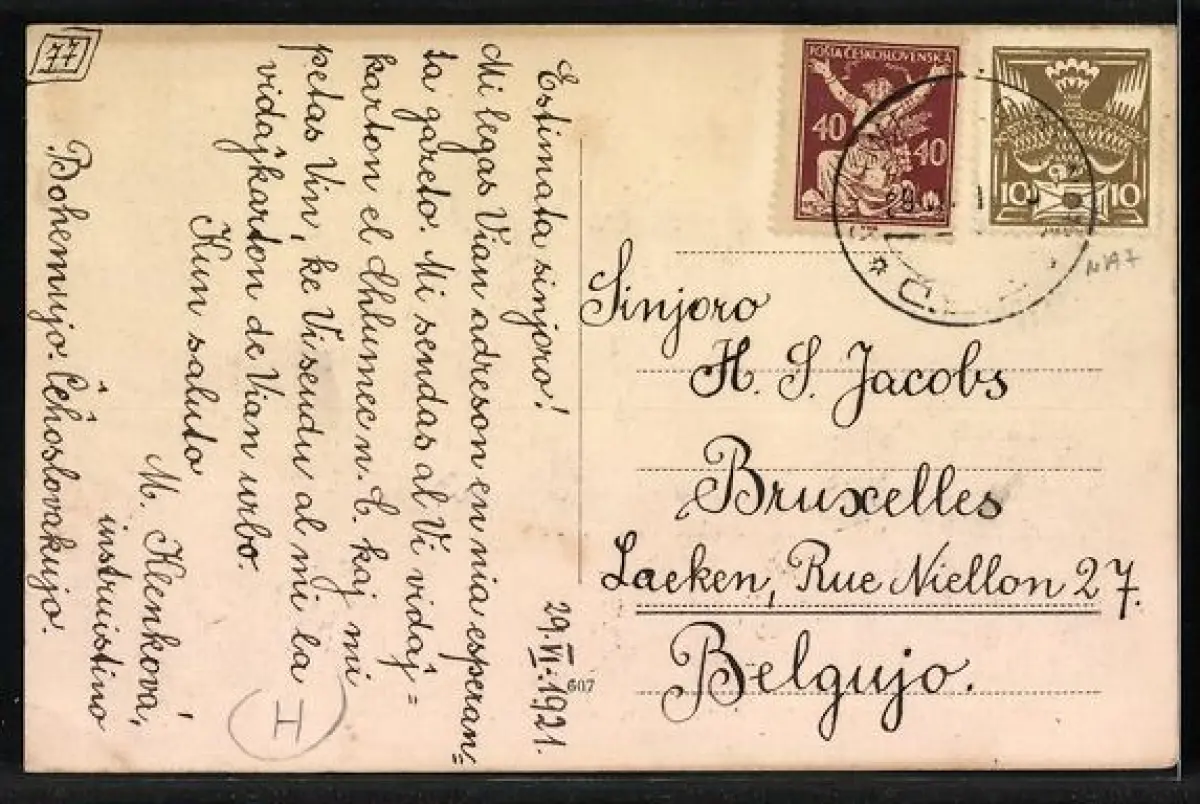 77
Estimata sinjoro!
29.VI.1921.
Mi legas Vian adreson en nia esperan=
ta gazeto. Mi sendas al Vi vidaj=
karton el Chlumec n. C. kaj mi
petas Vin, ke Vi sendu al mi la
vidajkarton de Vian urbo.
Kun saluto
M. Klenková,
instruistino
Bohemujo. Ĉeĥoslovakujo.
I
607
POŠTA ČESKOSLOVENSKÁ
40 40
10 10
29
Sinjoro
H. S. Jacobs
Bruxelles
Laeken, Rue Niellon 27.
Belgujo.